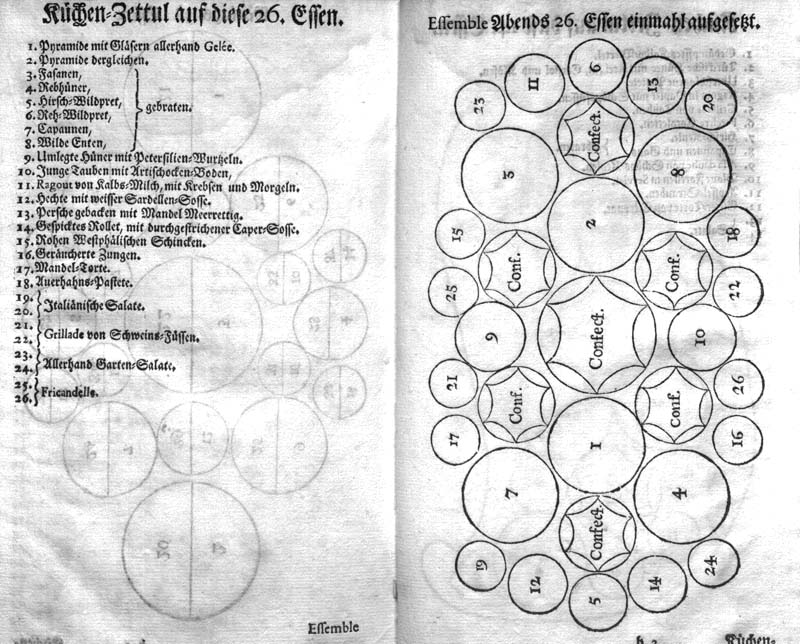 Küchen-Zettul auf diese 26. Essen.
1. Pyramide mit Gläsern allerhand Gelée.
2. Pyramide dergleichen.
3. Fasanen,
4. Rebhüner,
5. Hirsch-Wildpret,
6. Reh-Wildpret,
7. Capaunen,
8. Wilde Enten,
gebraten.
9. Umlegte Hüner mit Petersilien-Wurtzeln.
10. Junge Tauben mit Artischocken-Boden,
11. Ragout von Kalbs-Milch, mit Krebsen und Morgeln.
12. Hechte mit weisser Sardellen-Sosse.
13. Persche gebacken mit Mandel Meerrettig.
14. Gespicktes Rollet, mit durchgestrichener Caper-Sosse.
15. Rohen Westphälischen Schincken.
16. Geräucherte Zungen.
17. Mandel-Torte.
18. Auerhahns-Pastete.
19.
20. Italiänische Salate.
21.
22. Grillade von Schweins-Füssen.
23.
24. Allerhand Garten-Salate.
25.
26. Fricandelle.
Essemble
Essemble Abends 26. Essen einmahl aufgesetzt.
6
11
13
23
20
Confect.
3
8
2
15
18
Conf.
Conf.
25
22
9
Confect.
10
21
26
Conf.
Conf.
17
16
1
7
4
Confect.
19
24
12
14
5
h 2
Küchen-